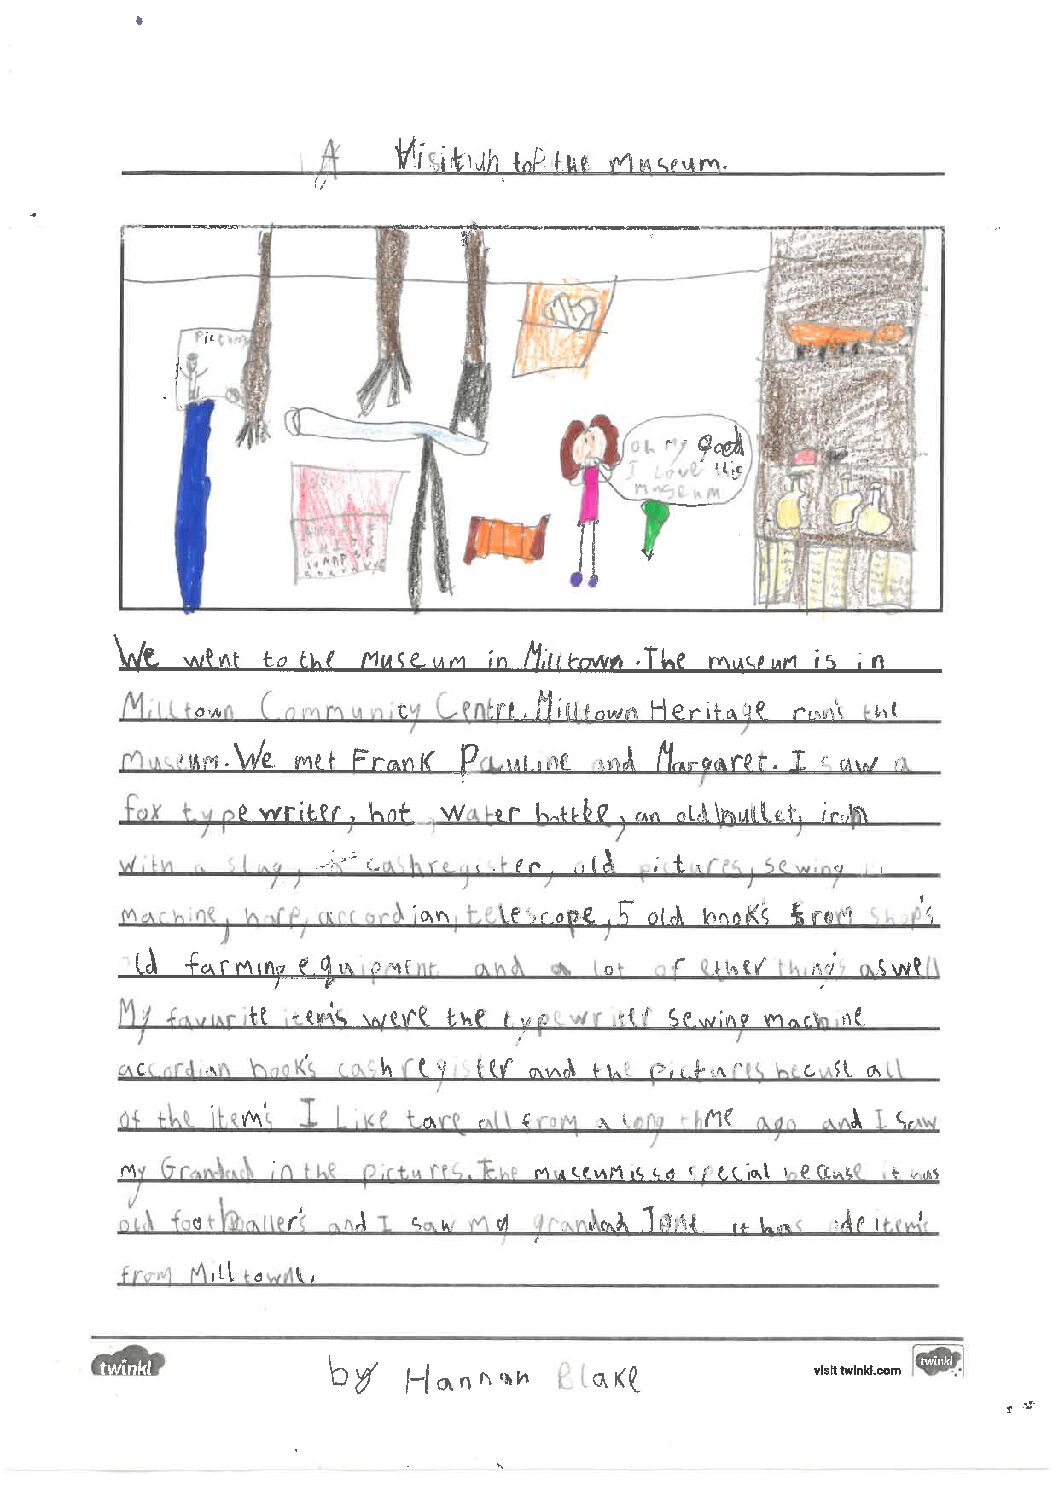 A Visit to the Museum.
Picture
oh my god
I Love this
museum
We went to the museum in Milltown. The museum is in
Milltown Community Centre. Milltown Heritage run's the
museum. We met Frank Pauline and Margaret. I saw a
fox type writer, hot water bottle, an old bullet, iron
with a slug, cash register, old pictures, sewing
machine, harp, accordian, telescope, 5 old book's from shop's
old farming equipment and a lot of other thing's aswell
My favurite item's were the typewriter sewing machine
accordian book's cash register and the pictures becuse all
of the item's I Like tare all from a long time ago and I saw
my Grandad in the pictures. The museum is so special because it has
old footballer's and I saw my grandad it has item's
from Milltowne.
twinkl
by Hannah Blake
visit twinkl.com
twinkl